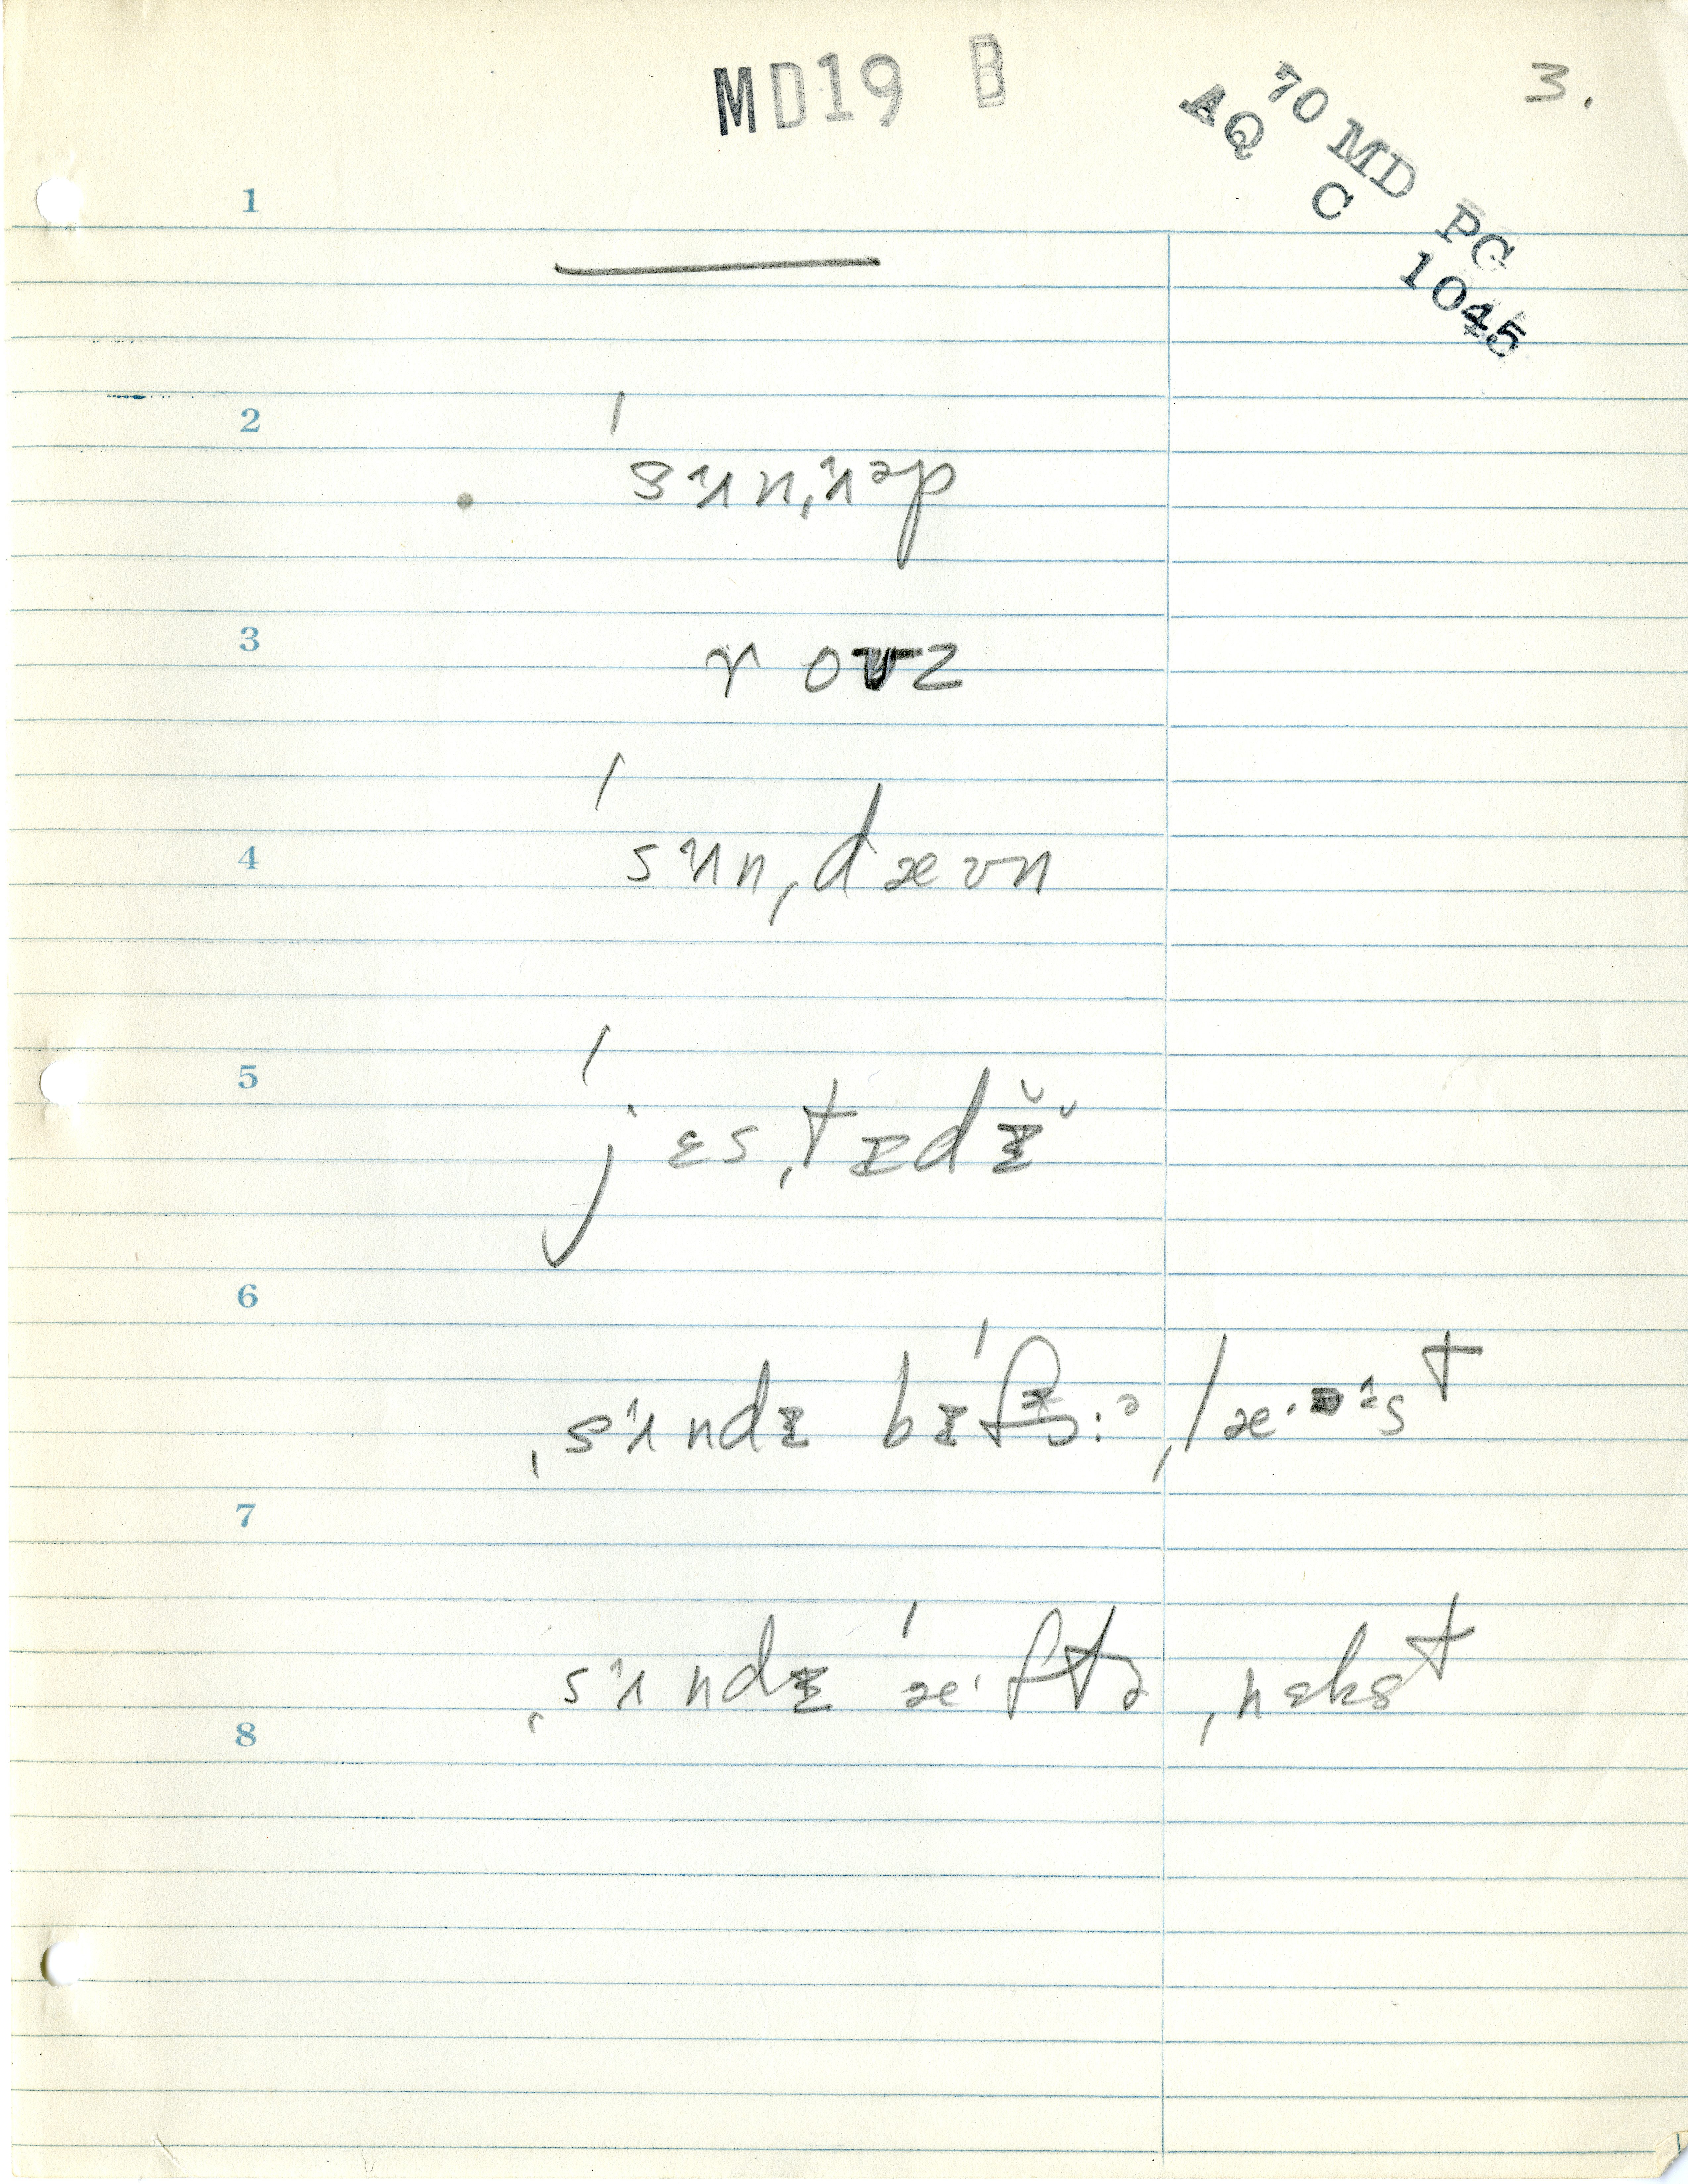 MD19 B
3.
70 MD PG
AQ C 1045
1
2
3
rouz
4
ˈsʌnˌdæʊn
5
ˈjɛsˌtɪdɪ̆
6
ˌsʌndɪ
7
ˌsʌndɪ ˈæˑftə ˌnɛkst
8